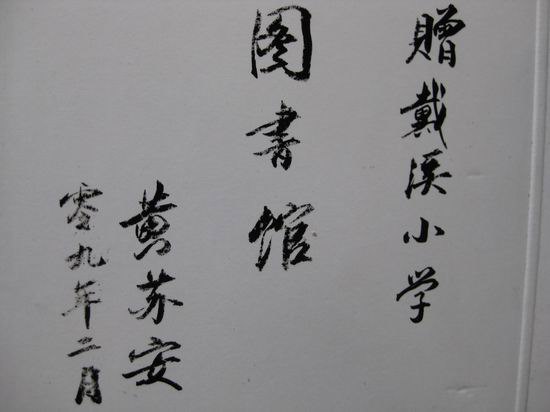 贈戴溪小学
图书馆
黄苏安
零九年二月